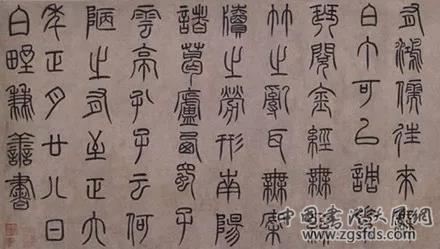 有鴻儒往來無
白丁可以調素
琴閱金經無絲
竹之亂耳無案
牘之勞形南陽
諸葛廬西蜀子
雲亭孔子云何
陋之有至正六
年正月廿八日
白野兼善書
中国书法大厦
www.zgsfds.com